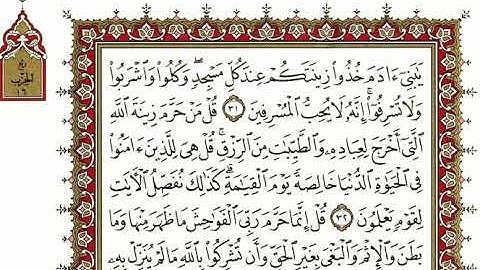 ربع
الحزب
١٦
يَٰبَنِيٓ ءَادَمَ خُذُوا۟ زِينَتَكُمْ عِندَ كُلِّ مَسْجِدٍ وَكُلُوا۟ وَٱشْرَبُوا۟
وَلَا تُسْرِفُوٓا۟ ۚ إِنَّهُۥ لَا يُحِبُّ ٱلْمُسْرِفِينَ ٣١ قُلْ مَنْ حَرَّمَ زِينَةَ ٱللَّهِ
ٱلَّتِىٓ أَخْرَجَ لِعِبَادِهِۦ وَٱلطَّيِّبَٰتِ مِنَ ٱلرِّزْقِ ۚ قُلْ هِىَ لِلَّذِينَ ءَامَنُوا۟
فِى ٱلْحَيَوٰةِ ٱلدُّنْيَا خَالِصَةً يَوْمَ ٱلْقِيَٰمَةِ ۗ كَذَٰلِكَ نُفَصِّلُ ٱلْءَايَٰتِ
لِقَوْمٍ يَعْلَمُونَ ٣٢ قُلْ إِنَّمَا حَرَّمَ رَبِّىَ ٱلْفَوَٰحِشَ مَا ظَهَرَ مِنْهَا وَمَا
بَطَنَ وَٱلْإِثْمَ وَٱلْبَغْىَ بِغَيْرِ ٱلْحَقِّ وَأَن تُشْرِكُوا۟ بِٱللَّهِ مَا لَمْ يُنَزِّلْ بِهِۦ